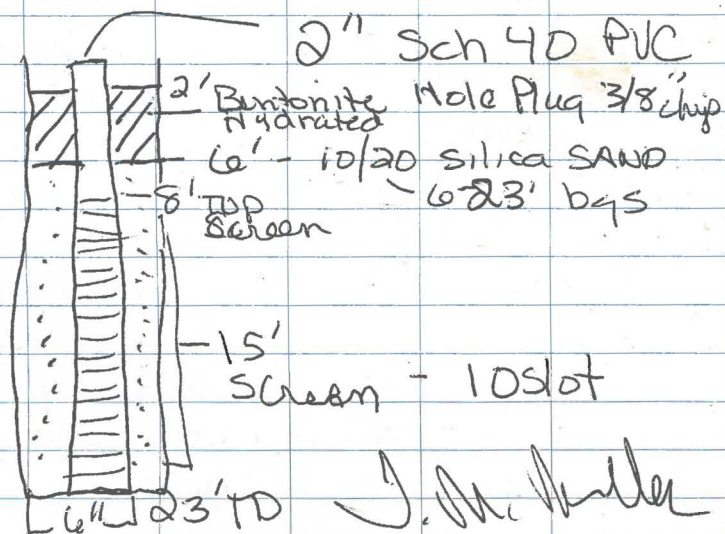 2" Sch 40 PVC
2' Bentonite Hole Plug 3/8" chip
Hydrated
6' - 10/20 silica SAND
6-23' bgs
8' TOP
Screen
15'
Screen - 10 slot
6" 23' TD J. M.